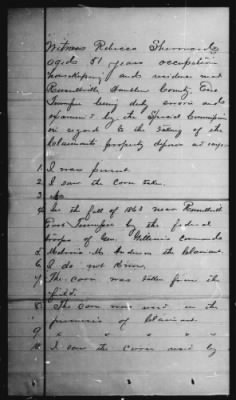 Witness Rebecca
aged 51 years occupation
housekeeping and residence near
Russellville Hamblen County East
Tennessee being duly sworn and
examined by the Special Commission
in regard to the taking of the
claimants property deposes and says
1. I was present
2. I saw the corn taken.
3. 
4. In the fall of 1863 near Russellville
East Tennessee by the federal
troops of Gen. command
5. M. Anderson the claimant.
6. I do not know.
7. The corn was taken from the
field.
8. The corn was used on the
premises of claimant.
9. " " " "
10. I saw the corn used by